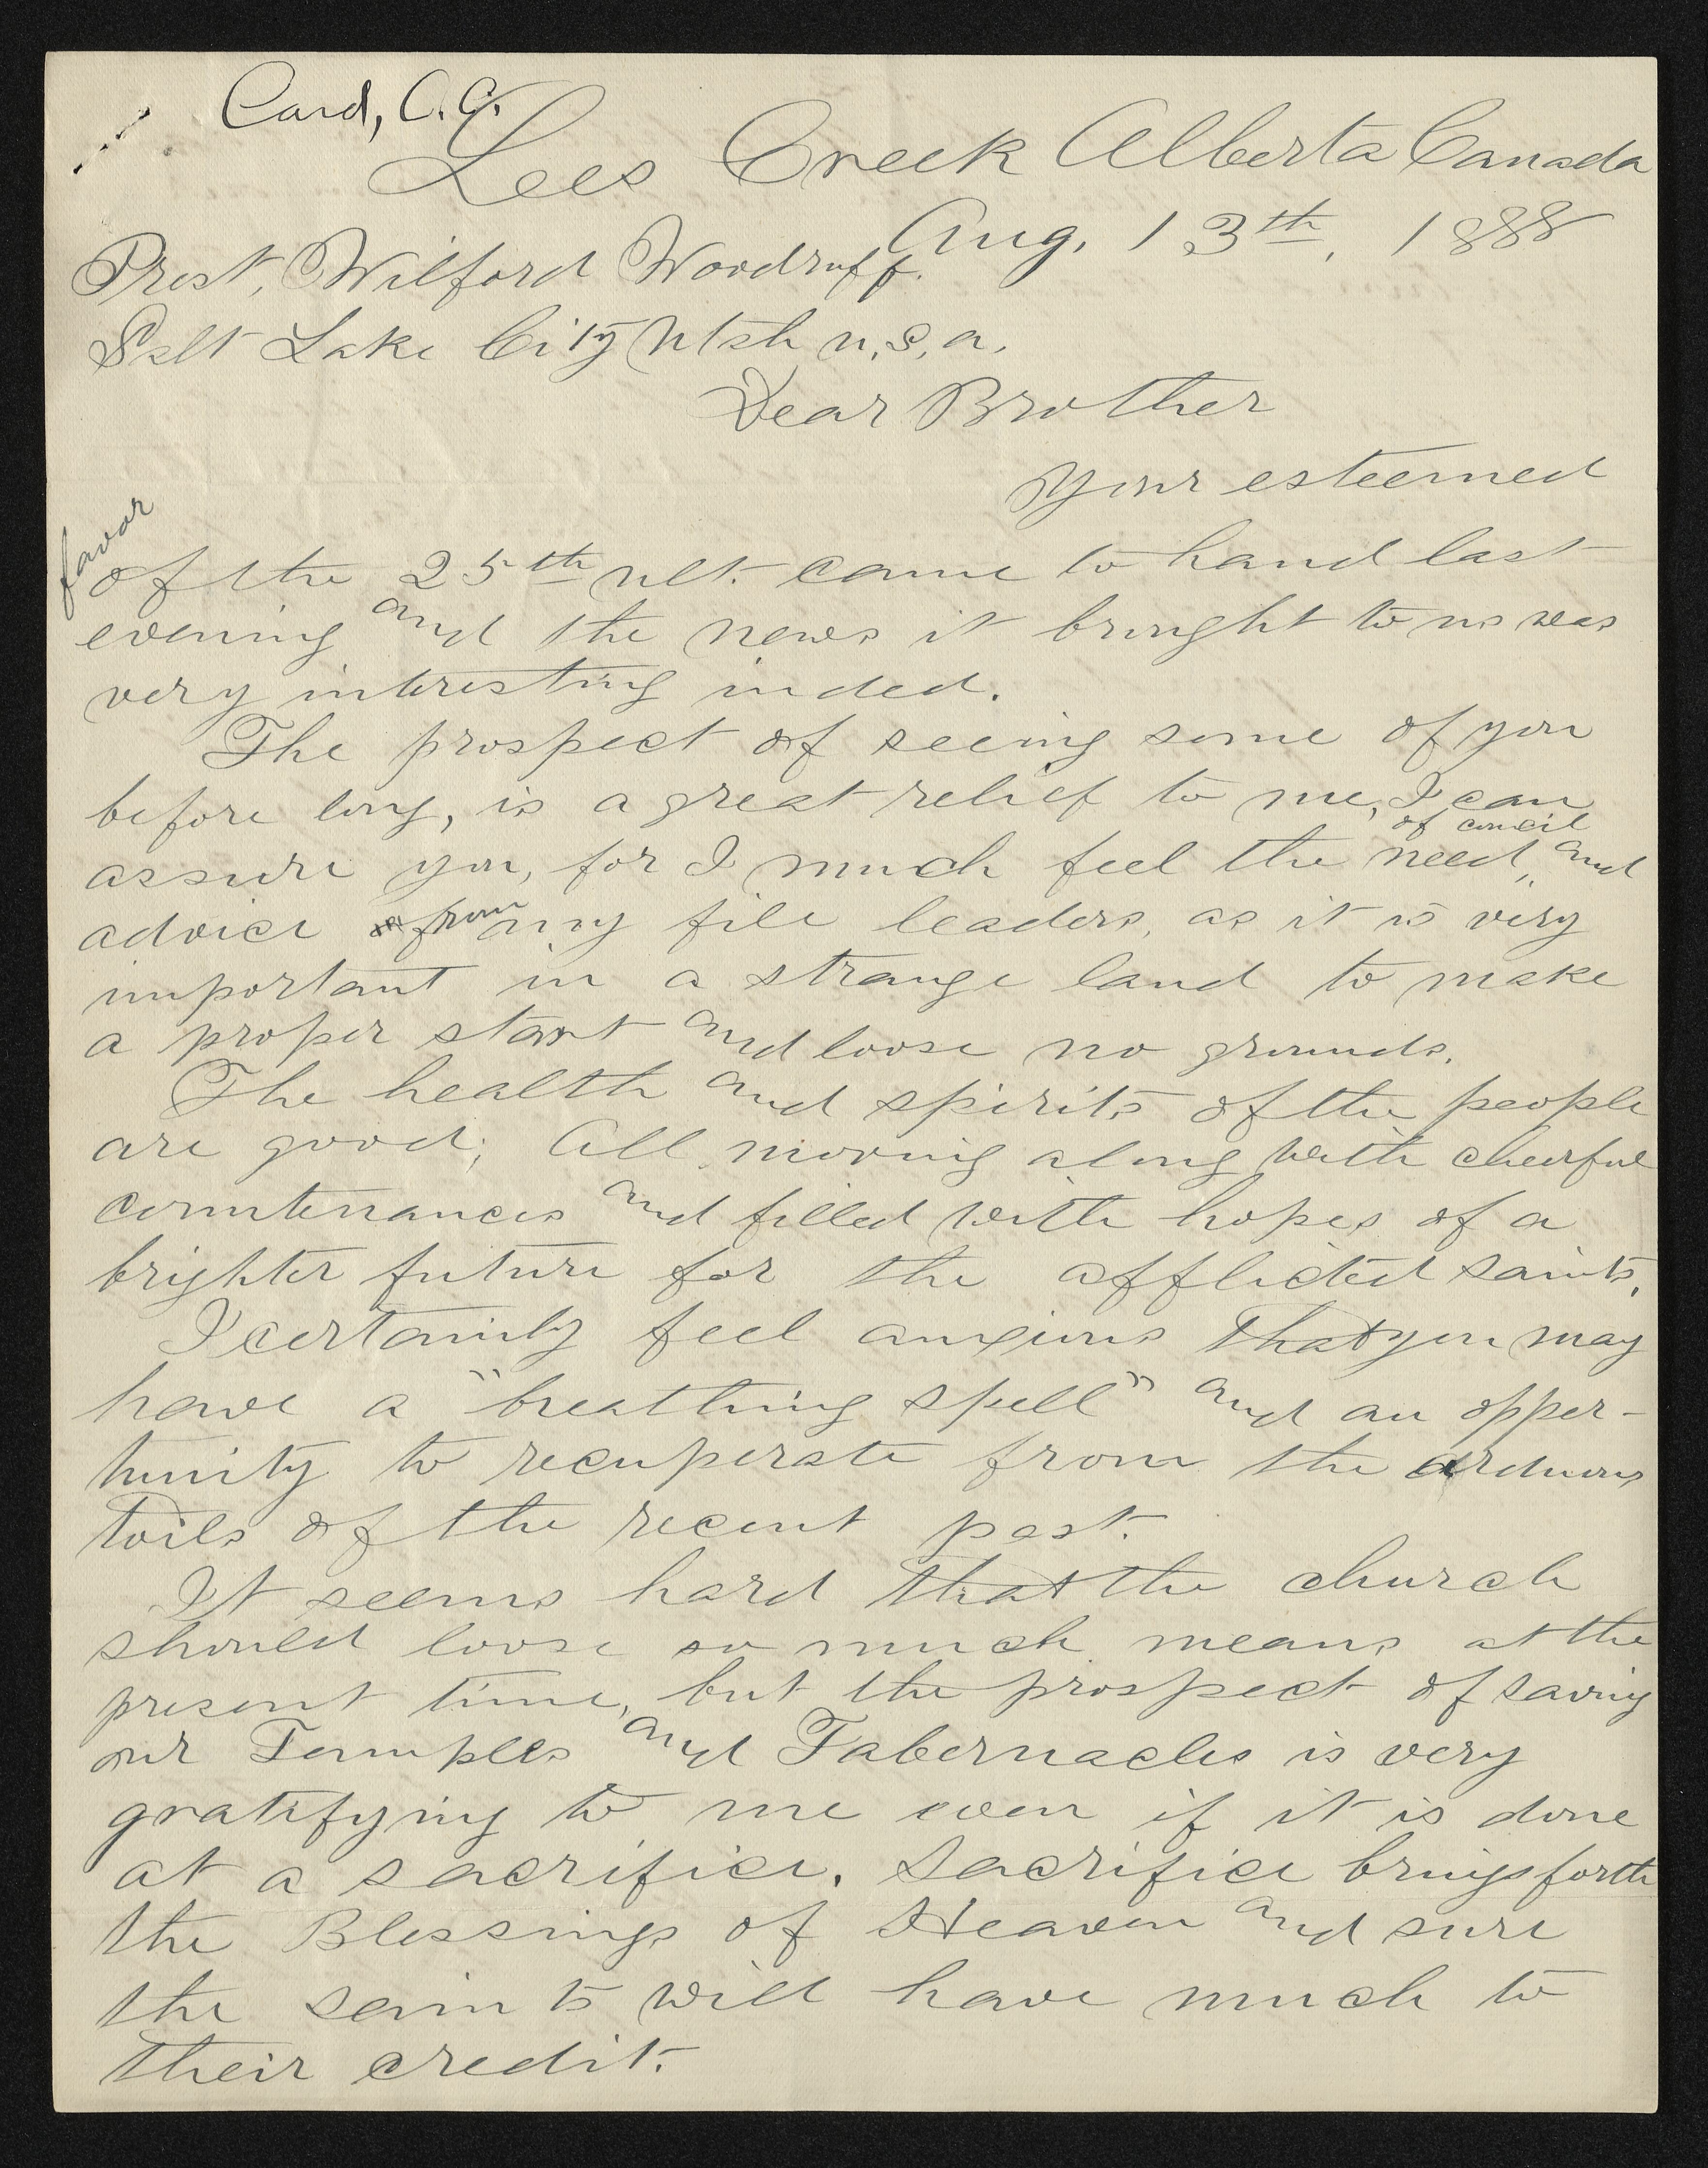 Card, C. O.
Lees Creek Alberta Canada
Aug. 13th, 1888
Prest. Wilford Woodruff.
Salt Lake City Utah U.S.A.
Dear Brother
Your esteemed
favor
of the 25th ult. came to hand last
evening and the news it brought to us was
very interesting inded.
The prospect of seeing some of you
before long, is a great relief to me, I can
of concil
assure you, for I much feel the need, and
advice from my file leaders, as it is very
important in a strange land to make
a proper start and loose no grounds.
The health and spirits of the people
are good; All moving along with cheerful
countenances and filled with hopes of a
brighter future for the afflicted saints.
I certainly feel anxious that you may
have a "breathing spell" and an opper-
tunity to recuperate from the arduous
toils of the recent past.
It seems hard that the church
should loose so much means at the
present time, but the prospect of saving
our Temples and Tabernacles is very
gratifying to me even if it is done
at a sacrifice. Sacrifice brings forth
the Blessings of Heaven and sure
the saints will have much to
their credit.